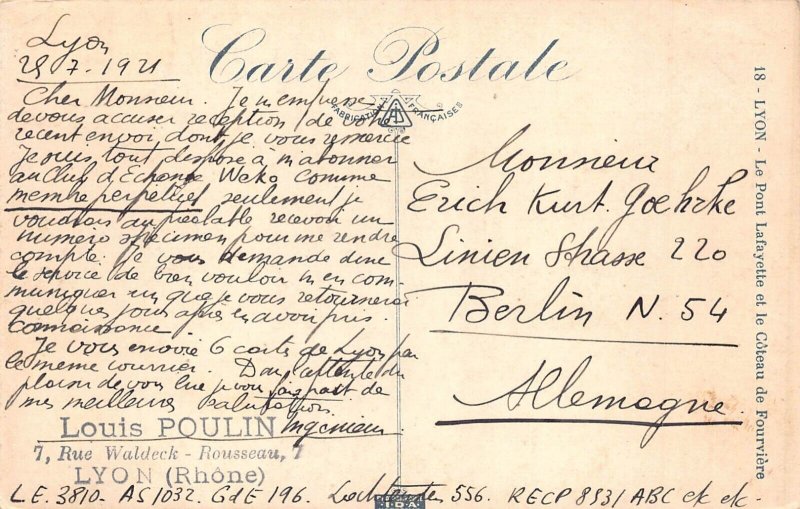 Carte Postale
FABRICATION FRANÇAISES
Lyon
25 7. 1921
Cher Monsieur. Je m'empresse
devous accuser reception de votre
recent envoi dont je vous remercie
Je suis tout dispose à m'abonner
au Club d'Echange Weko comme
membre perpetuel seulement je
voudrais au prealable recevoir un
numero specimen pour me rendre
compte. je vous demande donc
le service de bien vouloir m'en com-
muniquer un que je vous retournerai
quelques jours apres en avoir pris
connaissance
Je vous envoie 6 cartes de Lyon par
le meme courrier. Dans l'attente du
plaisir de vous lire je vous fais part de
mes meilleures salutations.
Ingenieur.
Louis POULIN
7, Rue Waldeck - Rousseau, 7
LYON (Rhône)
L.E. 3810- AS/1032. GdE 196. 556. RECP 8531 ABC etc etc-
I.D.A
Monsieur
Erich Kurt. Goehrke
Linien Strasse 220
Berlin N. 54
Allemagne.
18 - LYON - Le Pont Lafayette et le Côteau de Fourvière